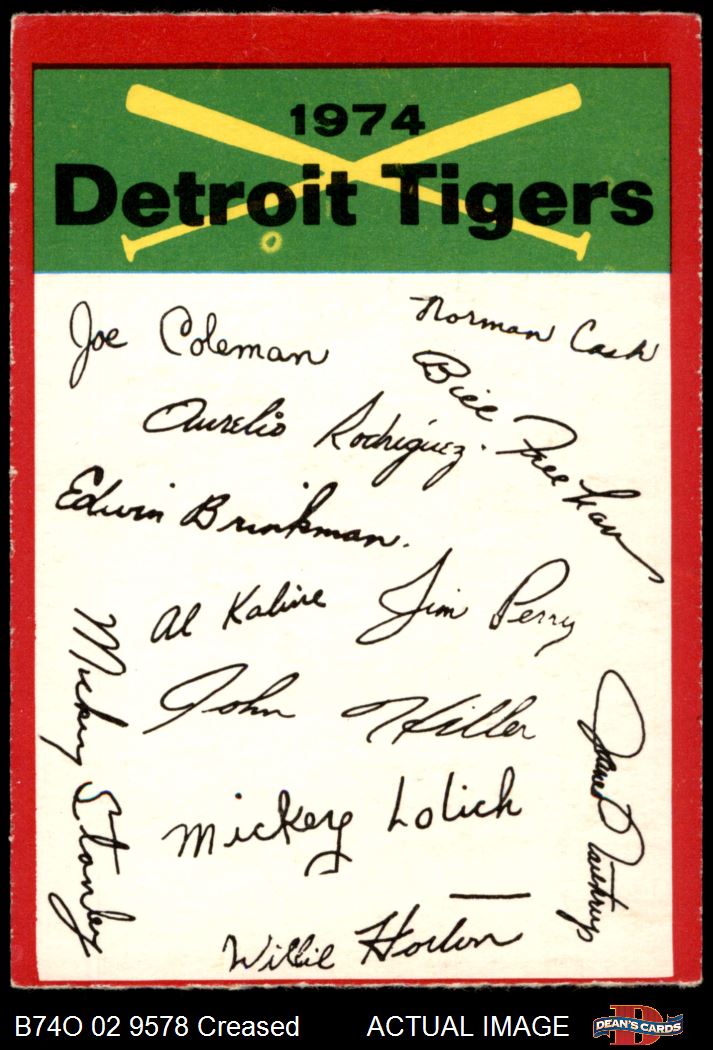 1974
Detroit Tigers
Joe Coleman
Norman Cash
Bill Freehan
Aurelio Rodriguez.
Edwin Brinkman.
Al Kaline
Jim Perry
Mickey Stanley
John Hiller
James Northrup
Mickey Lolich
Willie Horton
B74O 02 9578 Creased
ACTUAL IMAGE
D
DEAN'S CARDS